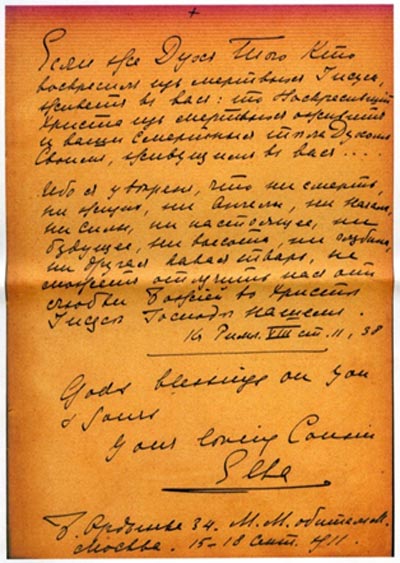 +
Если же Духъ Того Кто
воскресилъ изъ мертвыхъ Іисуса,
живетъ въ васъ: то Воскресившій
Христа изъ мертвыхъ оживитъ
и ваши смертныя тѣла Духомъ
Своимъ, живущимъ въ васъ....
Ибо я увѣренъ, что ни смерть,
ни жизнь, ни Ангелы, ни Начала,
ни Силы, ни настоящее, ни
будущее, ни высота, ни глубина,
ни другая какая тварь, не
можетъ отлучить насъ отъ
любви Божіей во Христѣ
Іисусѣ Господѣ нашемъ.
Къ Римл. VIII ст. 11, 38
Gods blessings on you
& yours
Your loving Cousin
Ella
Б. Ордынка 34. М. М. обитель М.
Москва. 15-18 Сент. 1911.